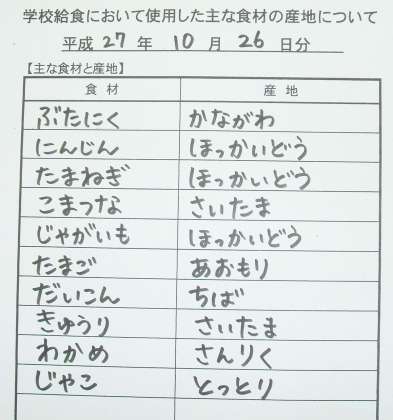 学校給食において使用した主な食材の産地について
平成 27 年 10 月 26 日分
【主な食材と産地】
食材 産地
ぶたにく かながわ
にんじん ほっかいどう
たまねぎ ほっかいどう
こまつな さいたま
じゃがいも ほっかいどう
たまご あおもり
だいこん ちば
きゅうり さいたま
わかめ さんりく
じゃこ とっとり